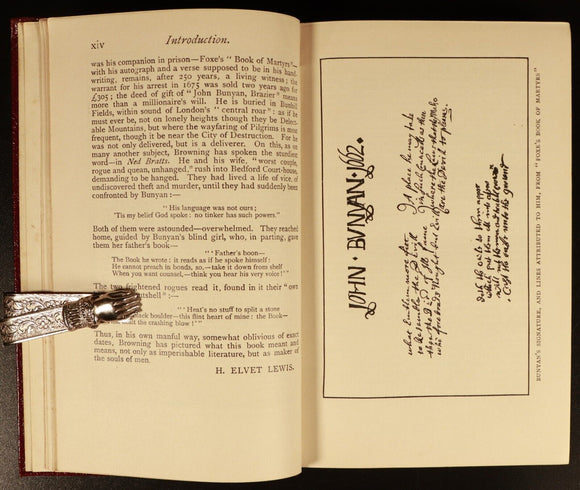 xiv Introduction.
was his companion in prison—Foxe's "Book of Martyrs"—
with his autograph and a verse supposed to be in his hand-
writing, remains, after 250 years, a living witness; the
warrant for his arrest in 1675 was sold two years ago for
£305; the deed of gift of "John Bunyan, Brazier" means
more than a millionaire's will. He is buried in Bunhill
Fields, within sound of London's "central roar": as if he
must ever be, not on lonely heights though they be Delec-
able Mountains, but where the wayfaring of Pilgrims is most
frequent, though it be near the City of Destruction. For he
was not only delivered, but is a deliverer. On this, as on
many another subject, Browning has spoken the sturdiest
word—in Ned Bratts. He and his wife, "worst couple,
rogue and quean, unhanged," rush into Bedford Court-house,
demanding to be hanged. They had lived a life of vice, of
undiscovered theft and murder, until they had suddenly been
confronted by Bunyan:—
"His language was not ours;
'Tis my belief God spoke: no tinker has such powers."
Both of them were astounded—overwhelmed. They reached
home, guided by Bunyan's blind girl, who, in parting, gave
them her father's book—
"'Father's boon—
The Book he wrote: it reads as if he spoke himself:
He cannot preach in bonds, so,—take it down from shelf
When you want counsel,—think you hear his very voice!'"
The two frightened rogues read it, found in it their "own
nutshell":—
"'Heat's no stuff to split a stone
black boulder—this flint heart of mine: the Book—
the crashing blow!'"
Thus, in his own manful way, somewhat oblivious of exact
dates, Browning has pictured what this book meant and
means, not only as imperishable literature, but as maker of
the souls of men.
H. ELVET LEWIS.
JOHN · BUNYAN · 1662.
BUNYAN'S SIGNATURE, AND LINES ATTRIBUTED TO HIM, FROM "FOXE'S BOOK OF MARTYRS"